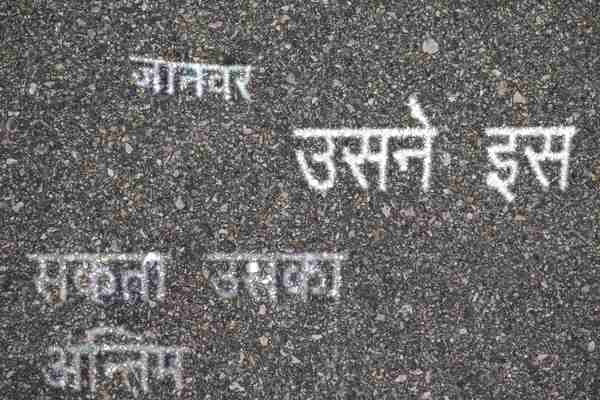 जानवर
उसने इस
सकती उसका
अन्तिम